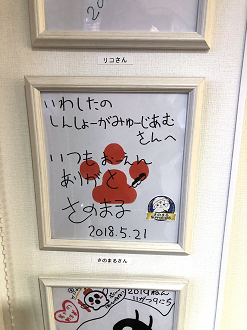 リコさん
いわしたの
しんしょーがみゅーじあむ
さんへ
いつもおーえん
ありがと
さのまる
2018.5.21
さのまるさん
2019ねん